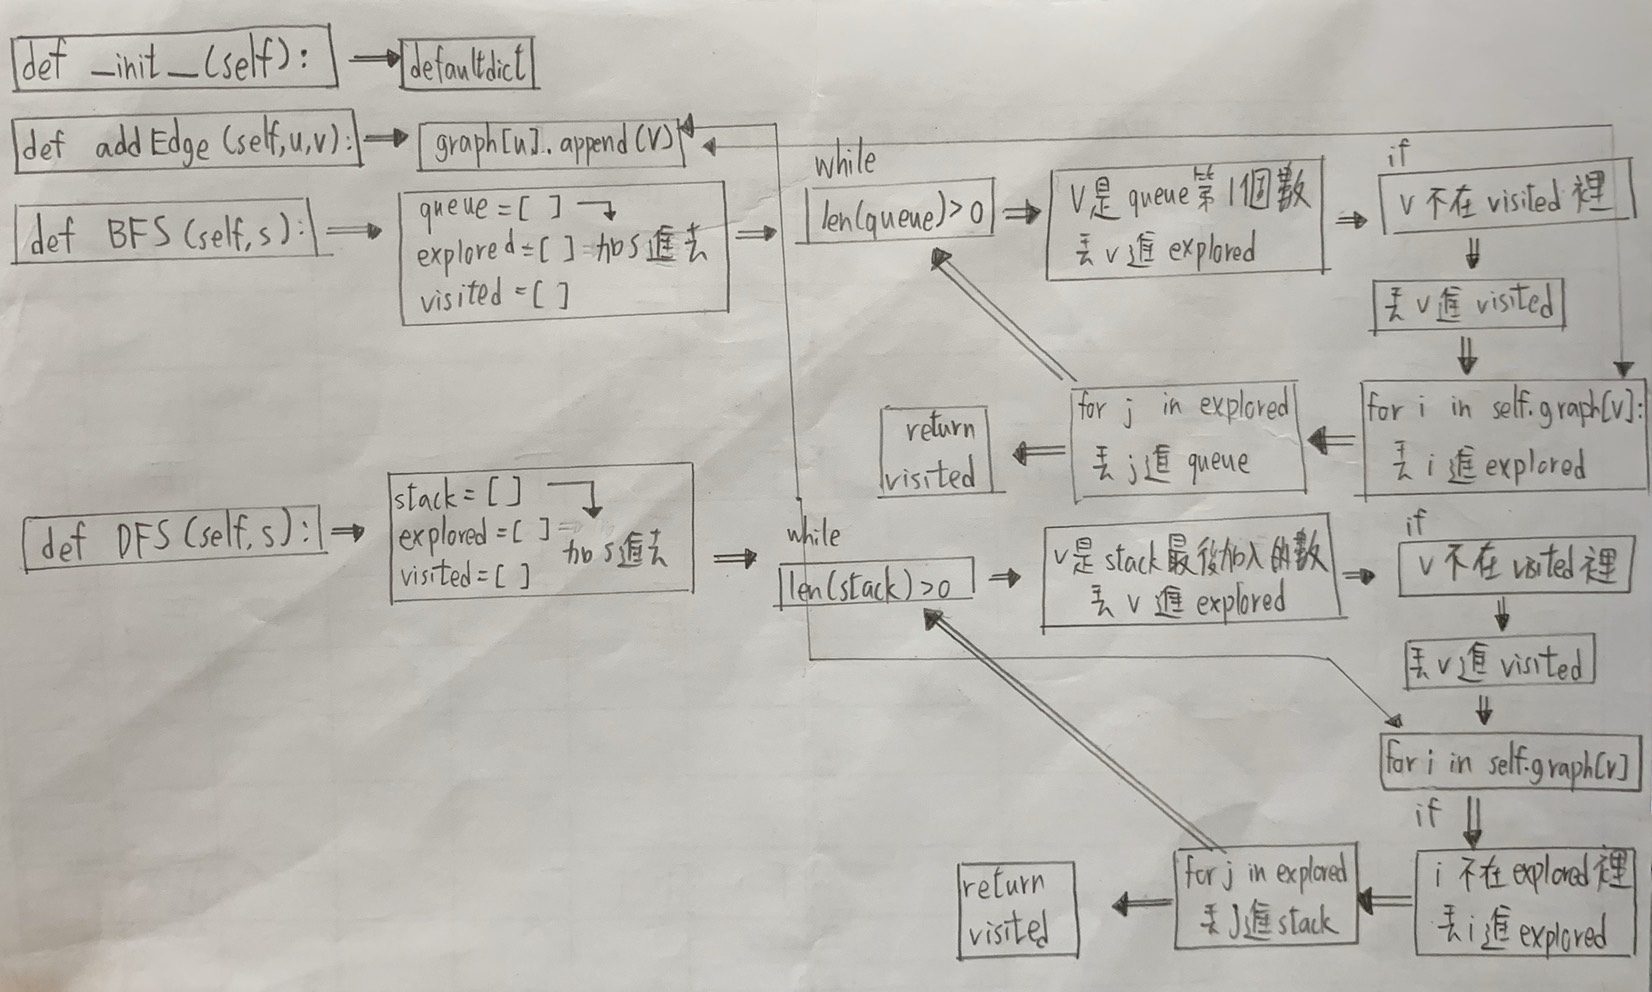 def _init_(self):
defaultdict
def addEdge(self,u,v):
graph[u].append(v)
def BFS(self,s):
queue=[ ]
explored=[ ] 加s進去
visited=[ ]
while
len(queue)>0
v是queue第1個數
丟v進explored
if
v不在visited裡
丟v進visited
for i in self.graph[v]:
丟i進explored
for j in explored
丟j進queue
return
visited
def DFS(self,s):
stack=[ ]
explored=[ ]
加s進去
visited=[ ]
while
len(stack)>0
v是stack最後加入的數
丟v進explored
if
v不在visited裡
丟v進visited
for i in self.graph[v]
if
i不在explored裡
丟i進explored
for j in explored
丟j進stack
return
visited